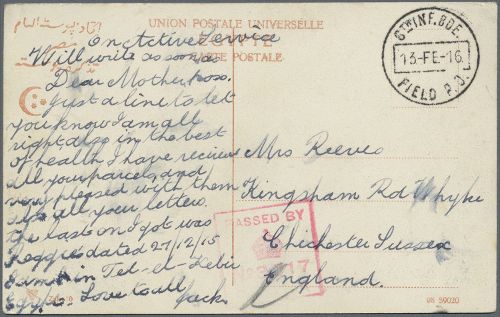 UNION POSTALE UNIVERSELLE
EGYPTE
CARTE POSTALE
6TH INF. BDE.
13-FE-16
FIELD P.O.
On Active Service
Will write as soon as poss.
Dear Mother
Just a line to let
you know I am all
right also in the best
of health, I have recieved
all your parcels, and
very pleased with them
also all your letters.
the last on I got was
Reggies dated 27/12/15
I am in Tel-el-Kebir
Egypt. Love to all
Jack.
Mrs Reeves
Kingsham Rd Whyke
Chichester Sussex
England.
PASSED BY
98 59020